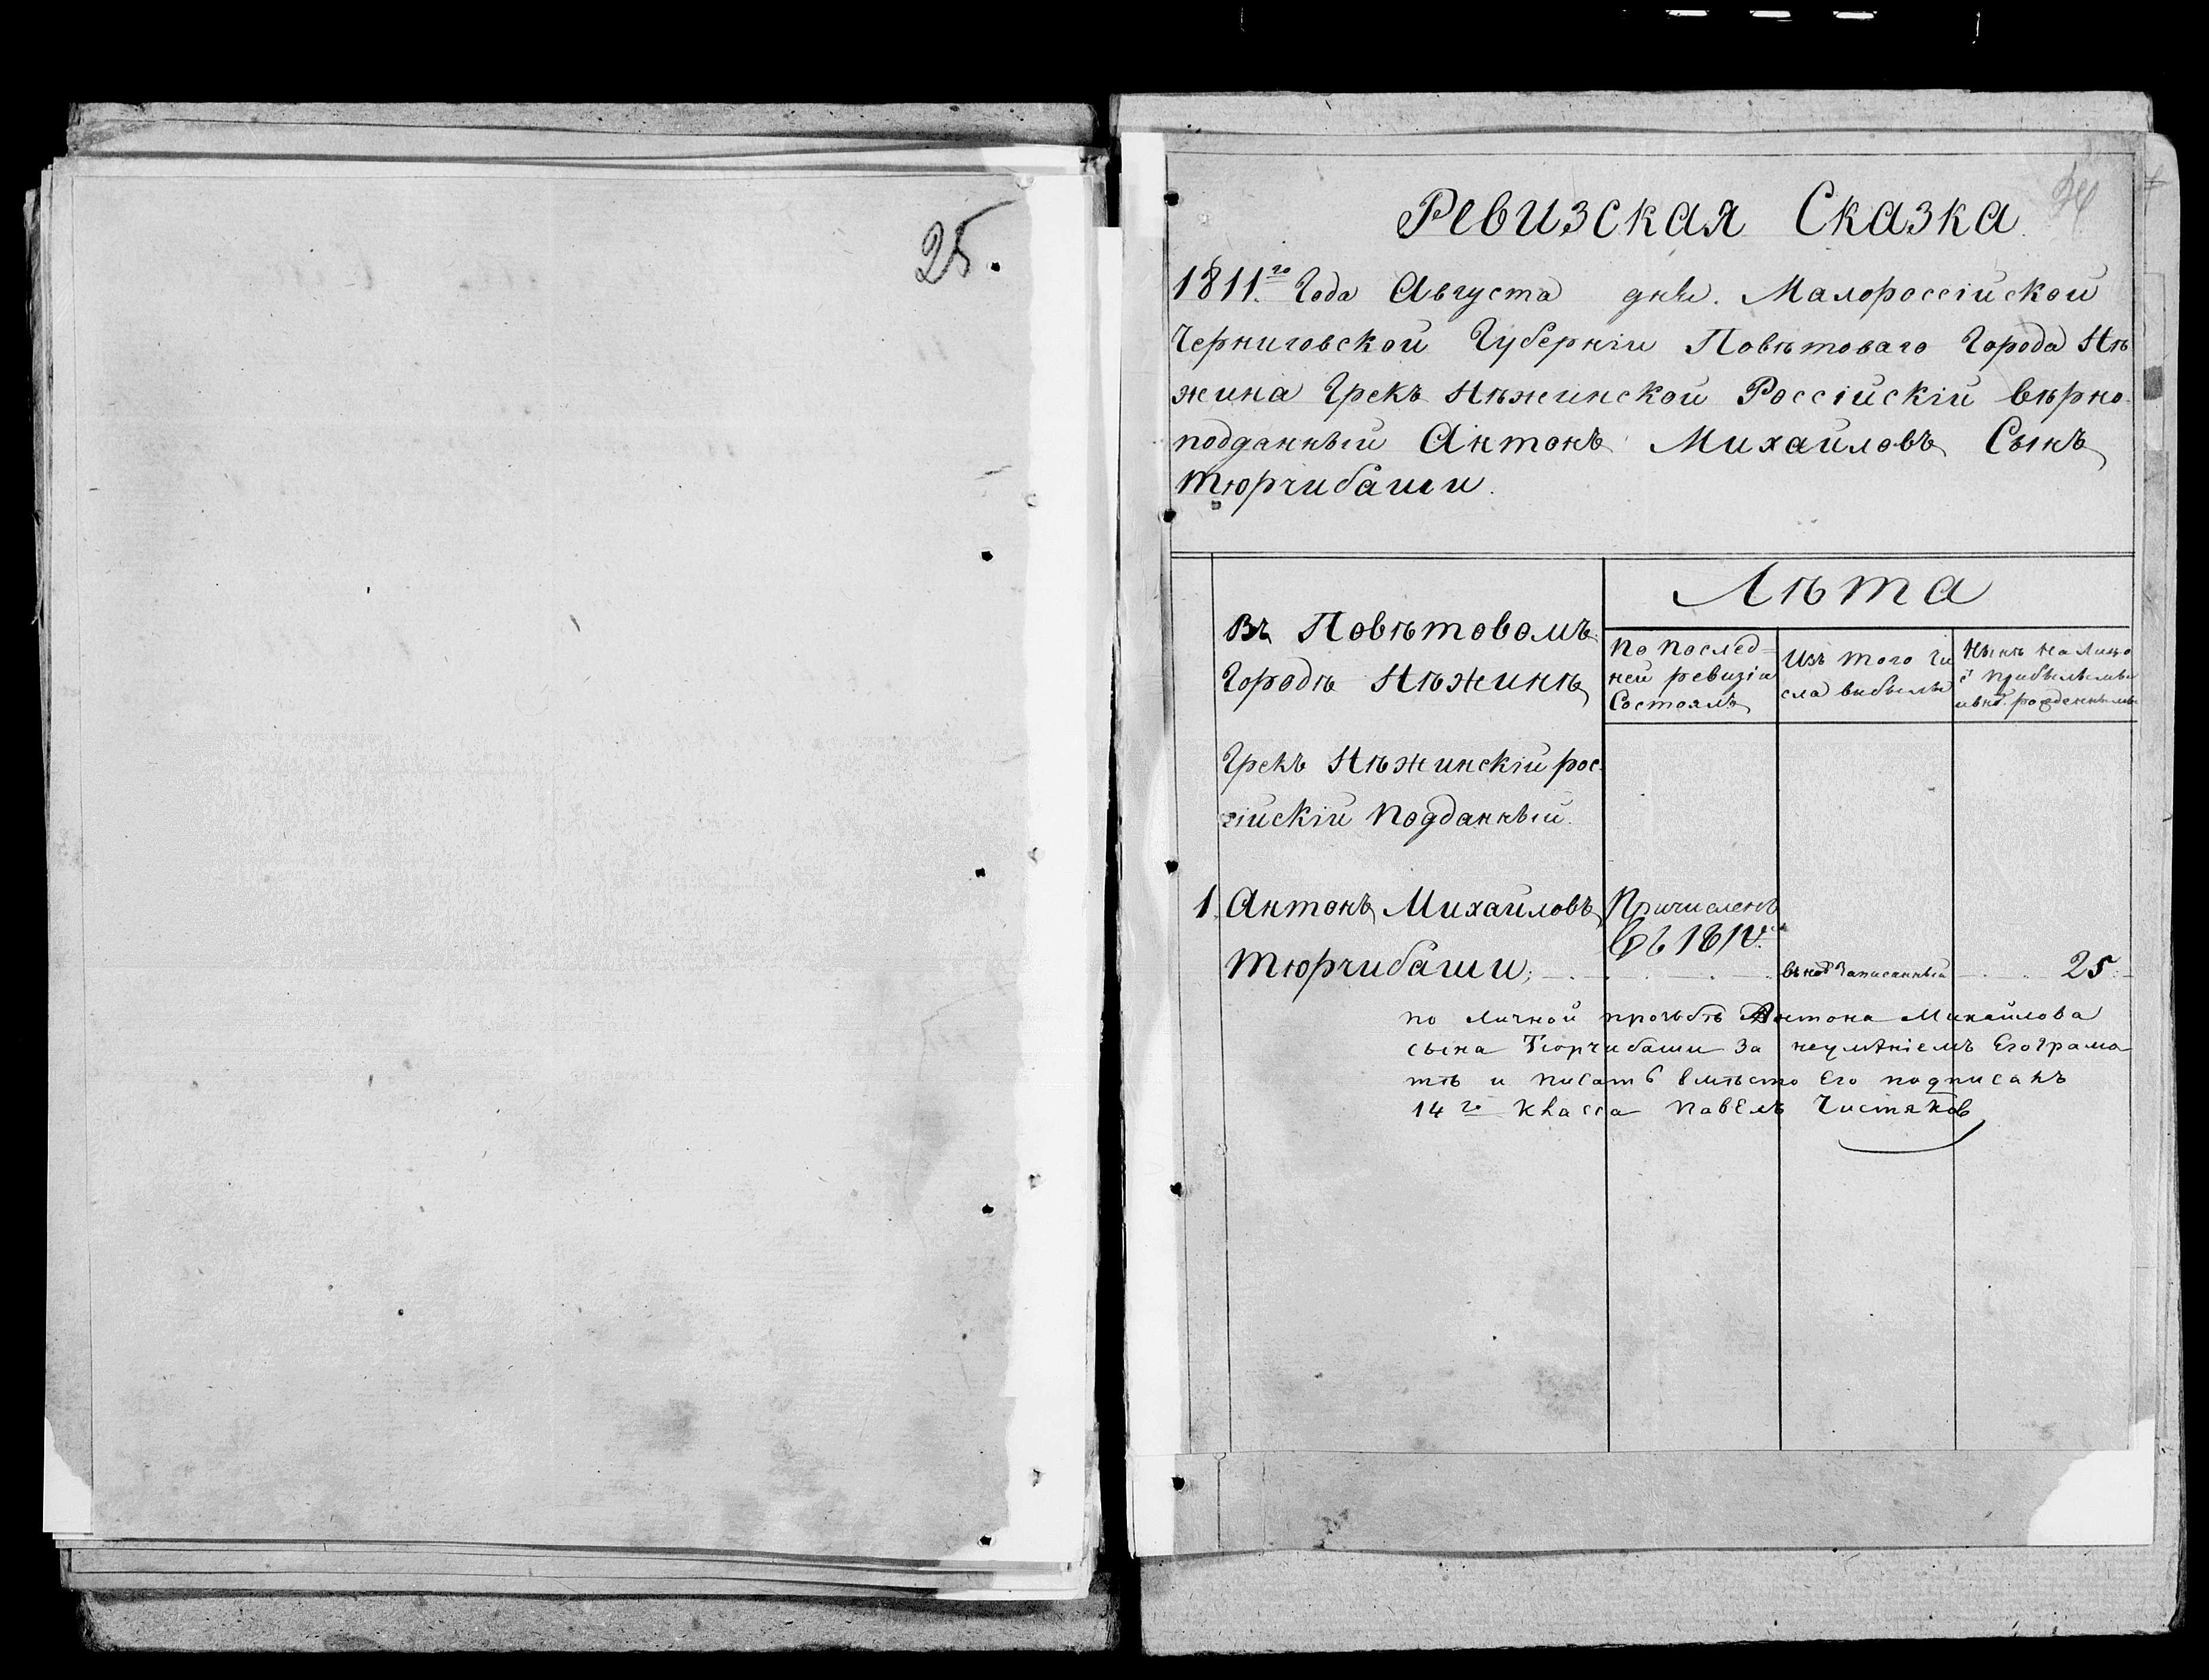 25.
Ревизская Сказка
1811.го Года Августа дня. Малороссійской
Черниговской Губерніи Повѣтоваго Города Нѣ
жина Грекъ Нѣжинской Россійскій вѣрно
подданный Антонъ Михайловъ Сынъ
Тюрчибаши.
Лѣта
Въ Повѣтовомъ
Городѣ Нѣжинѣ
по послед=
ней ревизіи
Состоялъ
Изъ того чи
сла выбылъ
Нынѣ на лицо
с прибылыми
и внов рожденными
Грекъ Нѣжинскій рос
сійскій подданный.
1. Антонъ Михайловъ
Тюрчибаши;
Причисленъ
въ 181
вьновь записанный
25
по личной прозьбѣ Антона Михайлова
сына Тюрчибаши за неумѣніемъ Его грамо
тѣ и писать вмѣсто Его подписалъ
14го класса Павелъ Чистяков